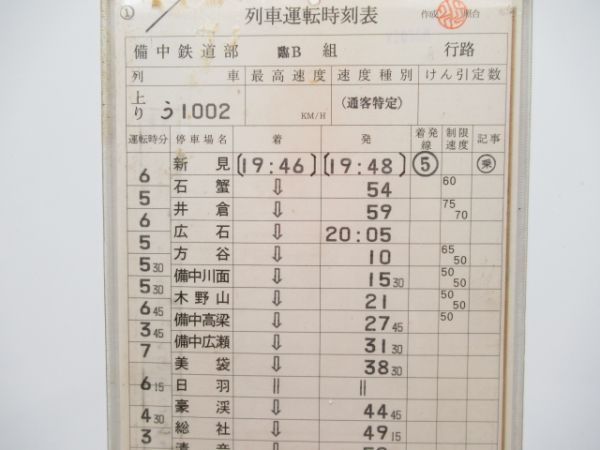 ①
列車運転時刻表
作成 照合
備中鉄道部 臨B 組 行路
列車 最高速度 速度種別 けん引定数
上り う1002 KM/H (通客特定)
運転時分 停車場名 着 発 着発線 制限速度 記事
新見 [19:46] [19:48] ⑤ 乗
6
石蟹 ⇩ 54 60
5
井倉 ⇩ 59 75 70
6
広石 ⇩ 20:05
5
方谷 ⇩ 10 65 50
5 30
備中川面 ⇩ 15 30 50 50
5 30
木野山 ⇩ 21 50 50
6 45
備中高梁 ⇩ 27 45 50
3 45
備中広瀬 ⇩ 31 30
7
美袋 ⇩ 38 30
日羽 || ||
6 15
豪渓 ⇩ 44 45
4 30
総社 ⇩ 49 15
3
清音